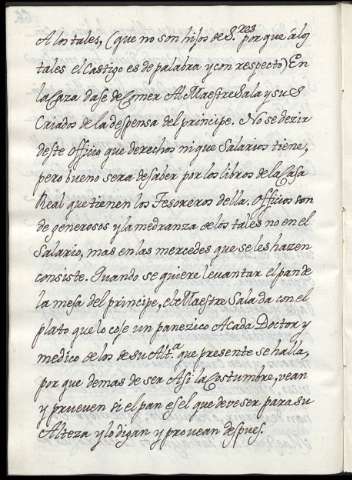 A los tales, (que no son hijos de S.res por que a los
tales el Castigo es de palabra y con respecto) En
la Caza dase de Comer Al Maestre Sala y sus
Criados de la despensa del principe. No se dezir
deste officio que derechos ni que Salarios tiene,
pero bueno sera de saber por los libros de la Casa
Real que tienen los Tesoreros della. Officios son
de generosos y la medranza de los tales no en el
Salario, mas en las mercedes que se les hazen
consiste. Quando se quiere levantar el pan de
la mesa del principe, el Maestre Sala da con el
plato que lo coje un panezico A cada Doctor y
medico de los de su Alt.a que presente se halla,
por que demas de ser Asi la Costumbre, vean
y prueven si el pan es el que deve ser para su
Alteza y lo digan y provean despues.